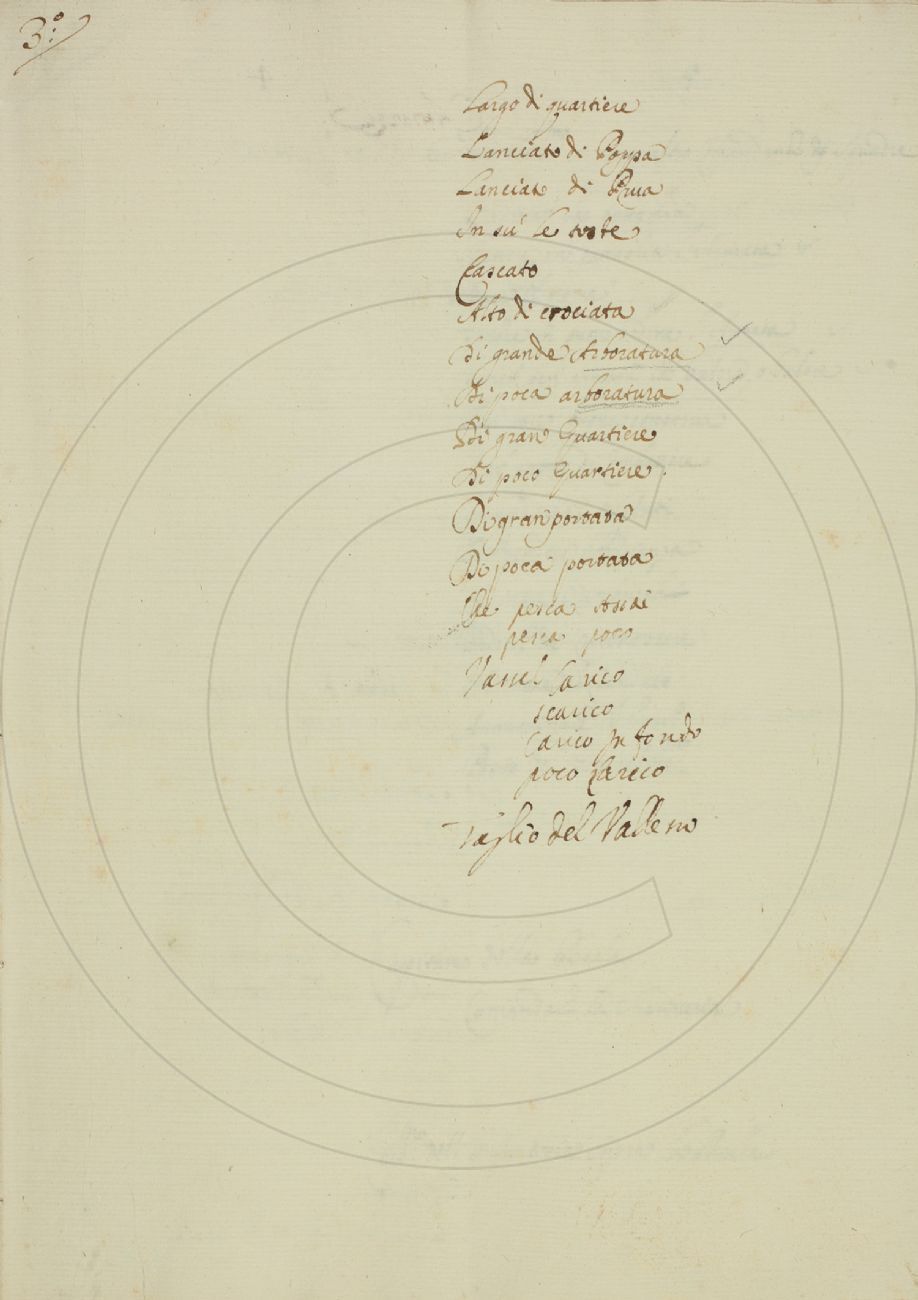 3.º
Largo di quartiere
Lanciato di Poppa
Lanciato di Prua
In sù le teste
Cascato
Alto di crociata
Di grande Arboratura
Di poca arboratura
Di gran Quartiere
Di poco Quartiere
Di gran portata
Di poca portata
Che pesca Assai
pesca poco
Vasel Carico
scarico
Carico in fondo
poco Carico
Taglio del Vassello